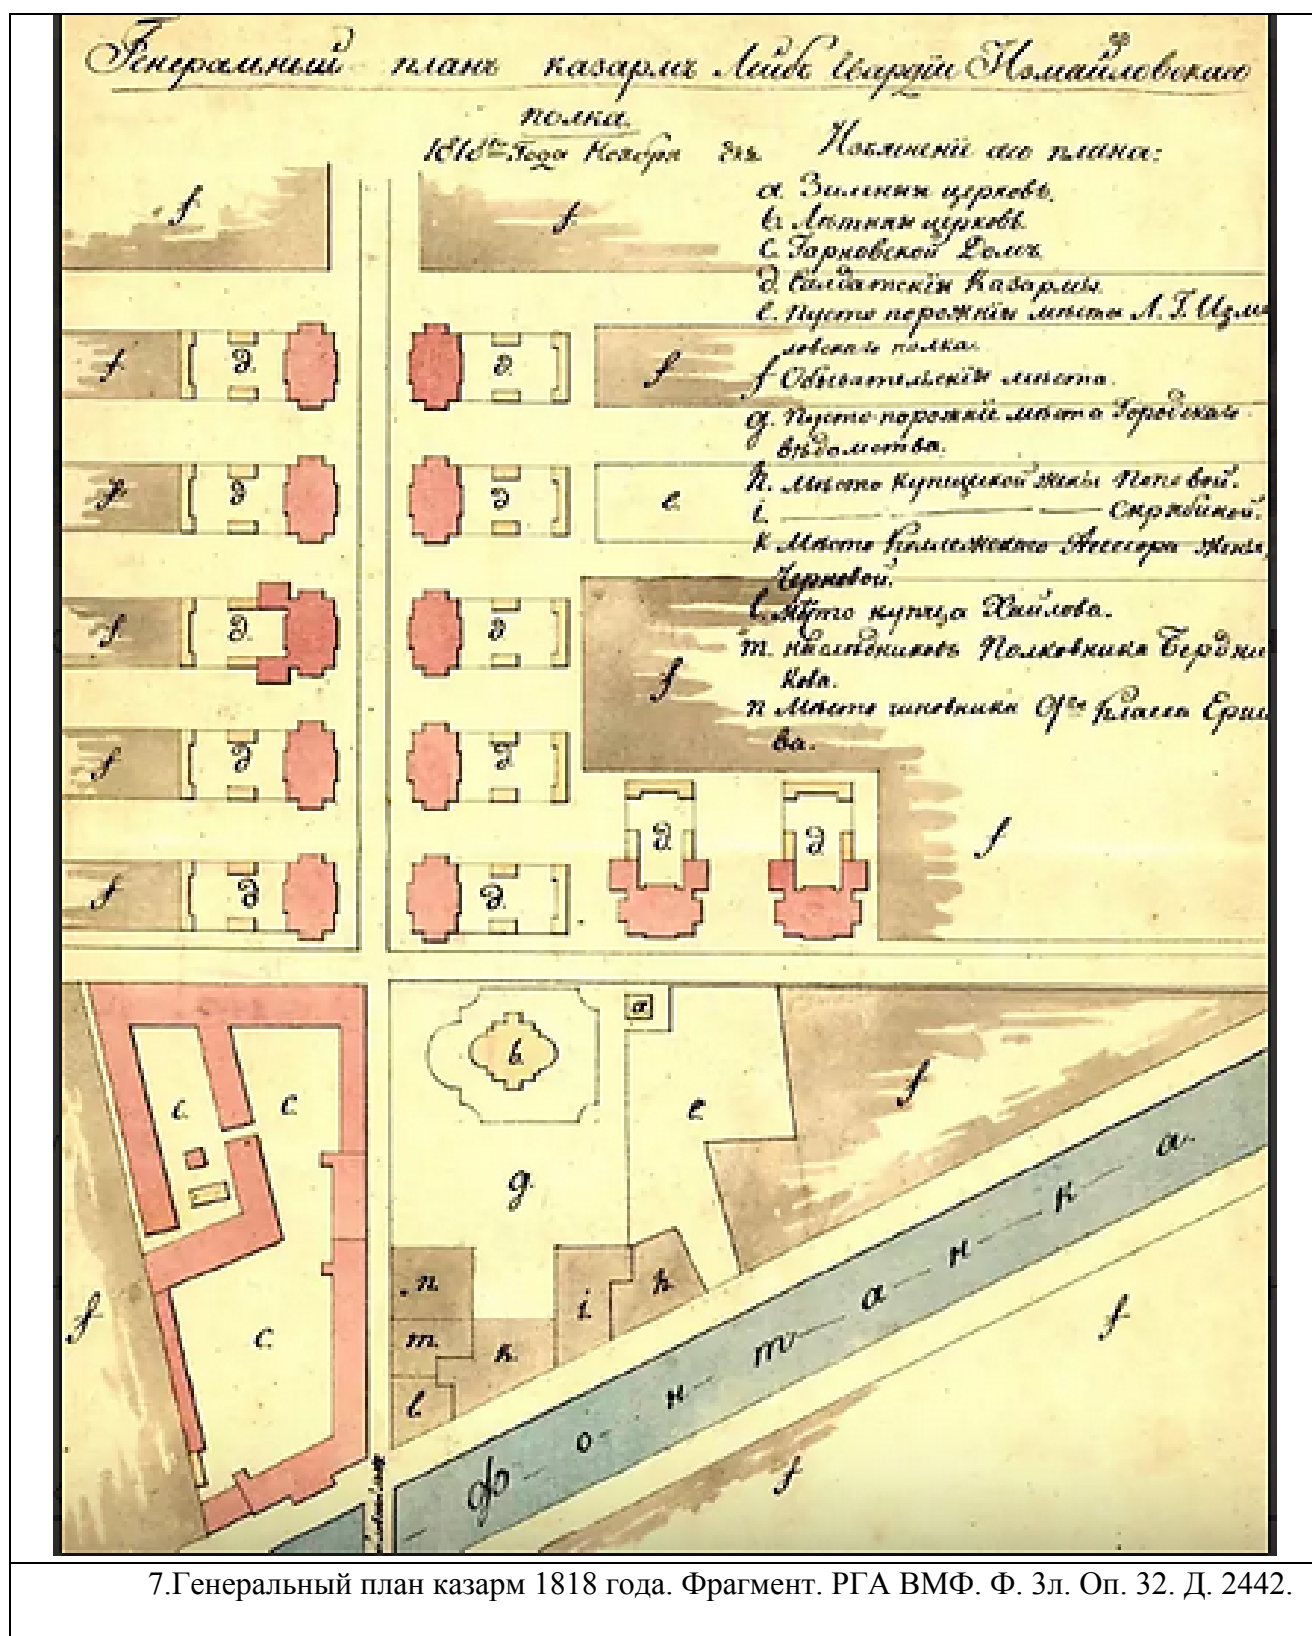 Генеральный планъ казармъ Лейбъ Гвардіи Измайловскаго
полка.
1818го Года Ноября дня
Изъясненіе сего плана:
а. Зимняя церковь.
b. Лѣтняя церковь.
c. Гарновской Домъ.
д. Салдатскія Казармы.
e. Пусто порожнія мѣста Л. Г. Измай
ловскаго полка.
f Обывательскія мѣста.
g. Пусто-порожнія мѣста Городскаго
вѣдомства.
h. Мѣсто купецкой жены Поповой.
i. — — — Скрябиной.
k Мѣсто Коллежскаго Асессора жены
Черновой.
l. Мѣсто купца Хаилова.
m. наслѣдниковъ Полковника Бердни
кова.
n Мѣсто чиновника 9го Класса
ва.
f f
f д. д. f
f д. д. e.
f д. д. f
f д. д. д. д. f
f д д.
b. a
c. c. e. f
g.
n. i. h.
m. k.
l.
c.
f
f
f
Ф о н т а н к а.
7.Генеральный план казарм 1818 года. Фрагмент. РГА ВМФ. Ф. 3л. Оп. 32. Д. 2442.